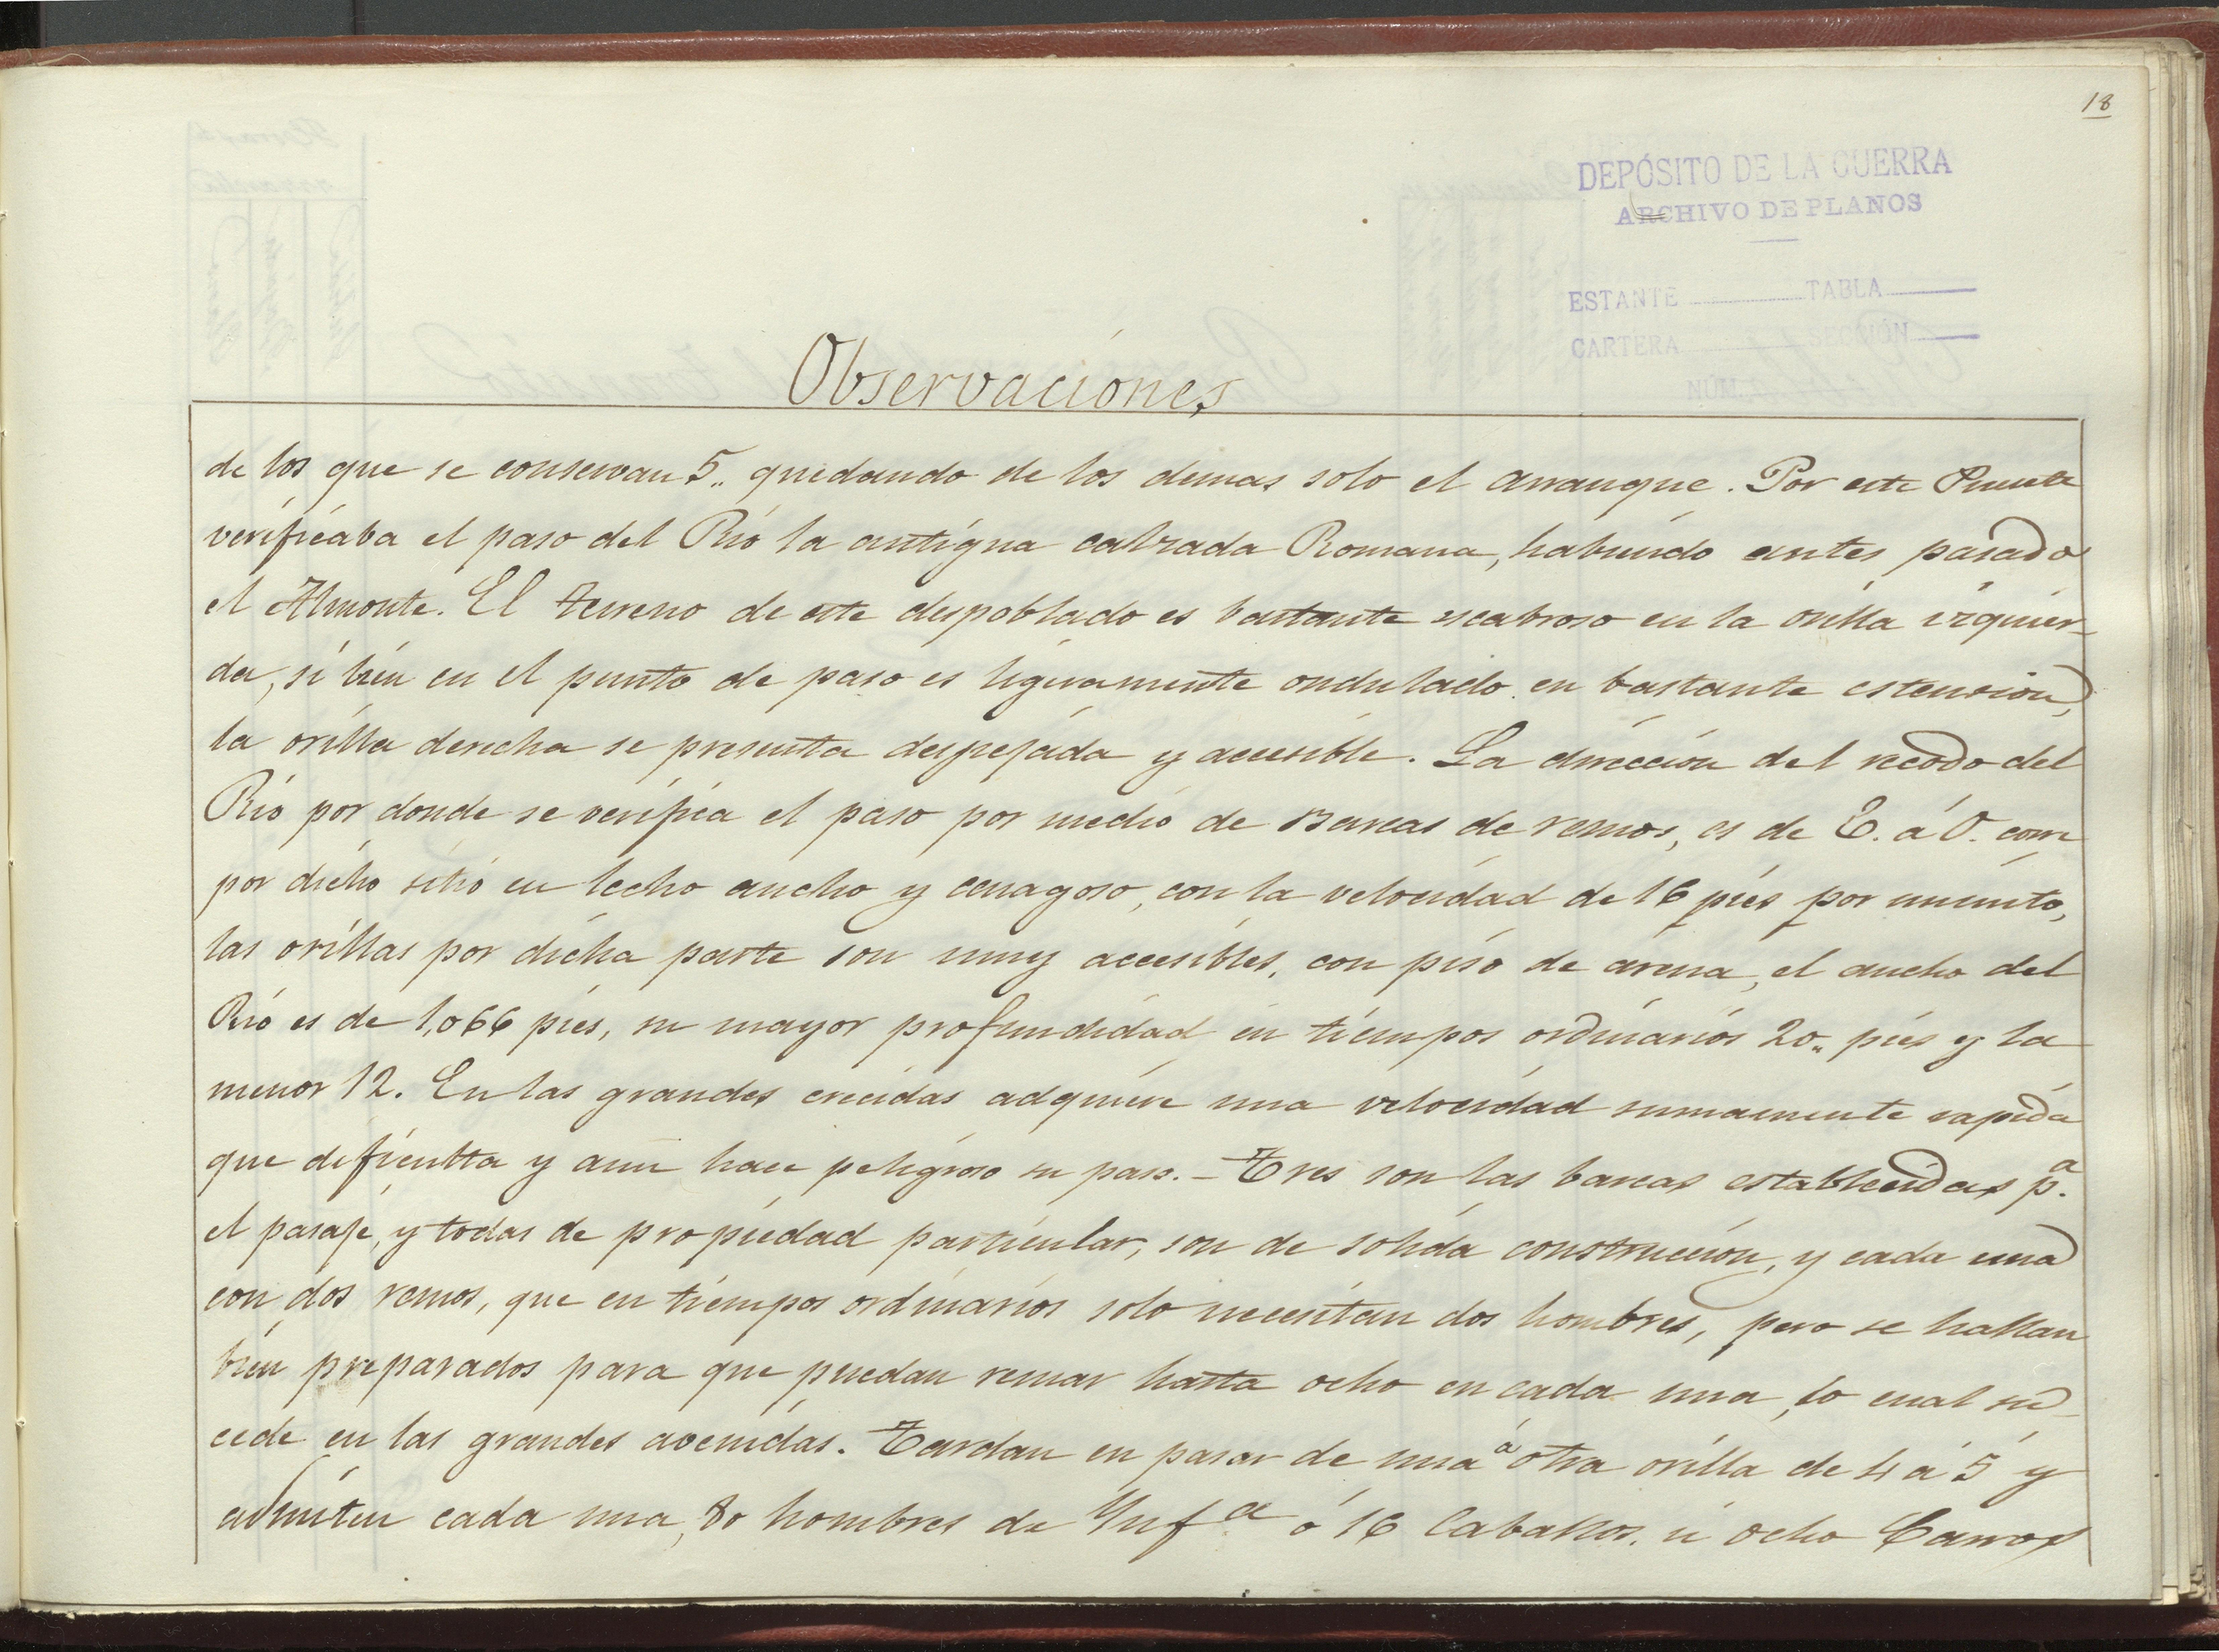 18
DEPÓSITO DE LA GUERRA
ARCHIVO DE PLANOS
ESTANTE TABLA
CARTERA SECCIÓN
NÚM
Observaciones
de los que se conservan 5,, quedando de los demas solo el arranque. Por este Puente
verificaba el paso del Rio la antigua calzada Romana, habiendo antes pasado
el Almonte. El terreno de este despoblado es bastante escabroso en la orilla izquier-
da, si bien en el punto de paso es ligeramente ondulado en bastante estension,
la orilla derecha se presenta despejada y accesible. La direccion del recodo del
Rio por donde se verifica el paso por medio de Barcas de remos, es de E. á O. corre
por dicho sitio en lecho ancho y cenagoso, con la velocidad de 16 pies por minuto,
las orillas por dicha parte son muy accesibles, con piso de arena, el ancho del
Rio es de 1,066 pies, su mayor profundidad en tiempos ordinarios 20,, pies y la
menor 12. En las grandes crecidas adquiere una velocidad sumamente rapida
que dificulta y aun hace peligroso su paso. - Tres son las barcas establecidas pª.
el pasaje, y todas de propiedad particular, son de solida construccion, y cada una
con dos remos, que en tiempos ordinarios solo necesitan dos hombres, pero se hallan
bien preparados para que puedan remar hasta ocho en cada una, lo cual su-
cede en las grandes avenidas. Tardan en pasar de una á otra orilla de 4 á 5' y
admiten cada una, 80 hombres de Ynfª ó 16 Caballos. ú ocho Carros